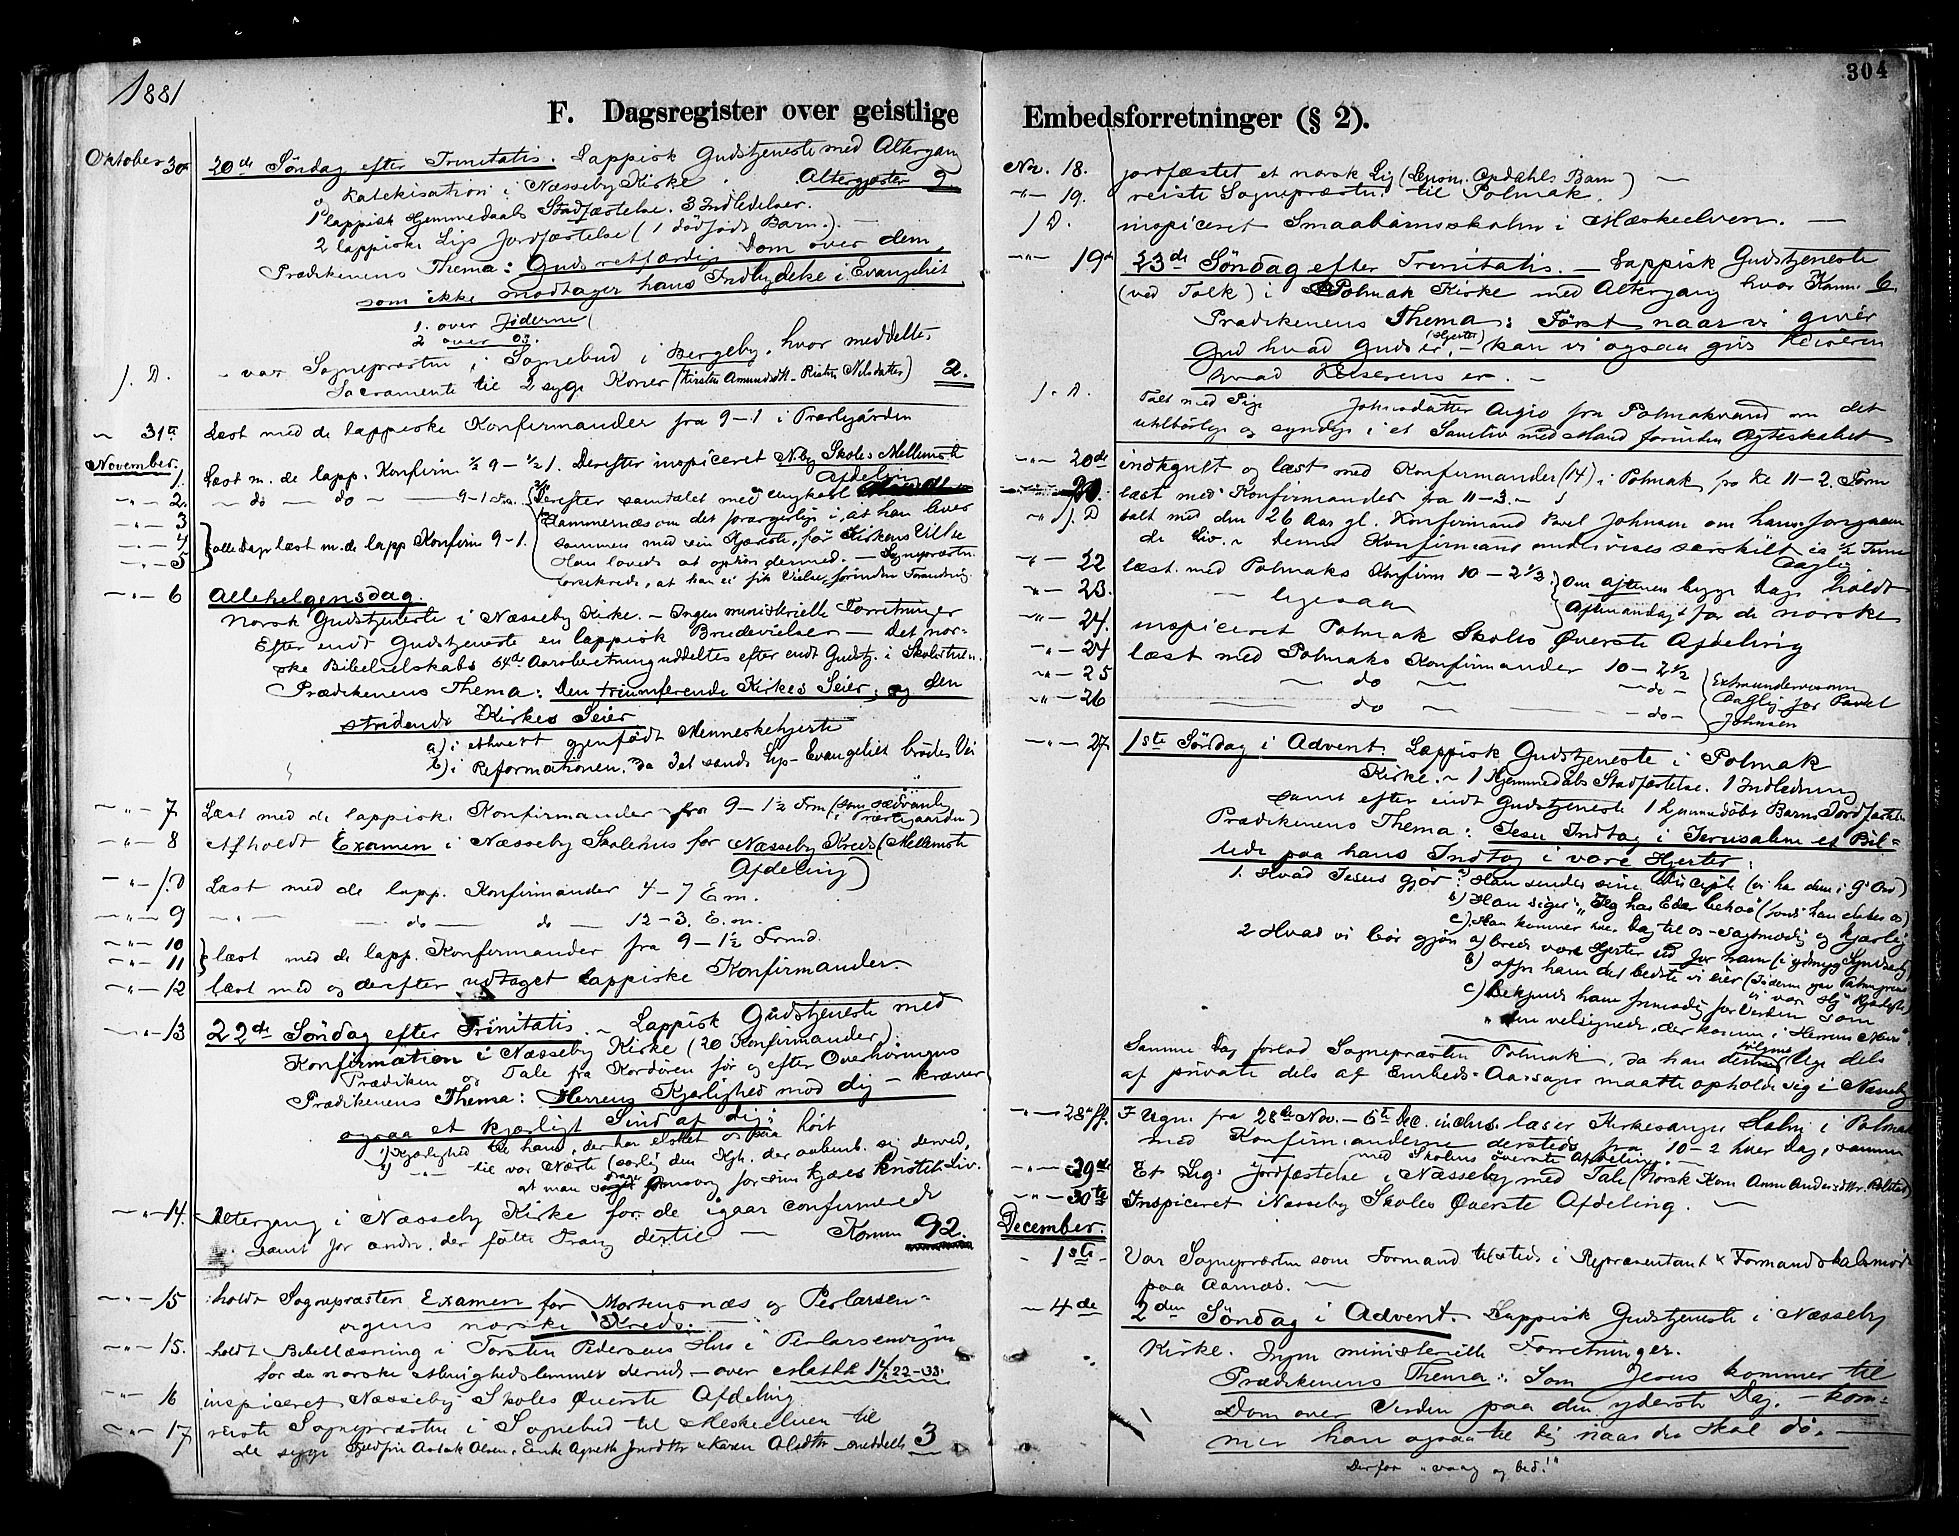 1881
304
F. Dagsregister over geistlige Embedsforretninger (§ 2).
Oktober 30 20de Søndag efter Trinitatis. Lappisk Gudstjeneste med Altergang
Katekisation i Næsseby Kirke. Altergjæster 9.
1 lappisk Hjemmedaabs Stadfæstelse. 3 Indledelser.
2 lappiske Ligs Jordfæstelse (1 dødfødt Barn.) —
Prædikenens Thema: Guds retfærdige Dom over dem,
som ikke modtager hans Indbydelse i Evangeliet
1. over Jøderne
2 over os.
s. D. - var Sognepræsten i Sognebud i Bergeby, hvor meddeltes
Sacramente til 2 syge Koner (Kirsten Amundsdtr - Risten Nilsdatter) 2.
— 31te Læst med de lappiske Konfirmander fra 9-1 i Præstegården
November.
1. Læst m. de lapp. Konfirm ½9-½1. Derefter inspiceret N.by Skoles Mellemste Afdeling
-"- 2. — do — do — 9-1 Fm. Derefter samtalet med ungkarl
-"- 3 Hammernæs om det forargerlige i, at han lever
-"- 4 alle Dage læst m. de lapp Konfirm 9-1. sammen med sin Kjæreste, før Kirkens Vielse
-"- 5 Han lovede at ophøre dermed. — Sognepræsten
forsikrede, at han ei fik Vielse forinden Forandring
-"- 6 Allehelgensdag.
Norsk Gudstjeneste i Næsseby Kirke. — Ingen ministerielle Forretninger
Efter endt Gudstjeneste en lappisk Brudevielse — Det nor-
ske Bibelselskabs 64de Aarsberetning uddeltes efter endt Gudstj. i Skolestuen.
Prædikenens Thema: Den triumferende Kirkes Seier, og den
stridende Kirkes Seier
a) i ethvert gjenfødt Menneskehjerte
b) i Reformationen, da det sande Lys - Evangeliet brødes Vei
-"- 7 Læst med de lappiske Konfirmander fra 9-1½ Frm (som sædvanlig i Præstegaarden)
-"- 8 Afholdt Examen i Næsseby Skolehus for Næsseby Kreds (Mellemste
Afdeling)
-"- s. D Læst med de lapp. Konfirmander 4-7 E m.
-"- 9 -"- — do — do — 12-3. E. m.
-"- 10
-"- 11 læst med de lapp. Konfirmander fra 9-1½ Frmd.
-"- 12 læst med og derefter udtaget lappiske Konfirmander.
-"- 13 22de Søndag efter Trinitatis. — Lappisk Gudstjeneste med
Konfirmation i Næsseby Kirke (20 Konfirmander)
Prædiken og Tale fra Kordøren før og efter Overhøringen
Prædikenens Thema: Herrens Kjærlighed mod dig - kræver
ogsaa et kjærligt Sind af dig:
a) Kjærlighed til ham, der har elsket os saa høit
b) -"- til vor Næste (særlig den Kjh. der aabenb. sig derved,
at man drager omsorg for sin kjæres kristel. Liv.
-"- 14. Altergang i Næsseby Kirke for de igaar confirmerede
samt for andre, der følte Trang dertil — Komm 92.
-"- 15 holdt Sognepræsten Examen for Mortensnæs og Perlarsen-
vigens norske Kreds.
-"- 15. holdt Bibellæsning i Torsten Pedersens Hus i Perlarsenvigen
for de norske Menighedslemmer derude - over Matth 14/22-33.
-"- 16 inspiceret Næsseby Skoles Øverste Afdeling
-"- 17 reiste Sognepræsten i Sognebud til Meskelven til
de syge Aslak Olsen, Erik Agneth & Karen Olsdtr meddelt 3
Nov. 18. jordfæstet et norsk Lig (Lensm. Opdahls Barn) —
-"- 19. reiste Sognepræsten til Polmak.
s D. inspiceret Smaabarnsskolen i Mæskeelven. —
-"- 19de 23de Søndag efter Trinitatis. — Lappisk Gudstjeneste
(ved Tolk) i Polmak Kirke med Altergang hvor Komm. 6.
Prædikenens Thema: Først naar vi giver
Gud hvad Guds er, (Hjertet) - kan vi ogsaa give Keiseren
hvad Keiserens er. —
s. D. Talt med Pige Johnsdatter Aigio fra Polmakvand om det
utilbørlige og syndige i et Samliv med Mand forinden Ægteskabet
-"- 20de indskrevet og læst med Konfirmander (14) i Polmak fra Kl 11-2. Form
21. læst med Konfirmander fra 11-3. —
-"- s. D talt med den 26 Aar gl. Konfirmand Pavel Johnsen om hans forgaaen-
de Liv. — Denne Konfirmand undervises serskilt ca ½ Time
daglig
-"- 22 læst med Polmaks Konfirm 10-2½. Om aftenen begge Dage holdt
-"- 23. — ligesaa Aftenandagt for de norske
-"- 24. inspiceret Polmak Skoles Øverste Afdeling
-"- 24 læst med Polmaks Konfirmander 10-2½
-"- 25 — do — — do — Extraundervisning
-"- 26 — do — — do — daglig for Pavel
Johnsen
-"- 27 1ste Søndag i Advent. Lappisk Gudstjeneste i Polmak
Kirke. — 1 Hjemmedåbs Stadfæstelse. 1 Indledning
samt efter endt Gudstjeneste 1 hjemmedøbt Barns Jordfæstelse
Prædikenens Thema: Jesu Indtog i Jerusalem et Bil-
lede paa hans Indtog i vore Hjerter:
1. Hvad Jesus gjør: a) Han sender sine Disciple (vi har dem i G. Ord)
b) Han siger: "Jeg har Eder behov"
c) Han kommer hver Dag til os - sagtmodig og kjærlig
2 Hvad vi bør gjøre a) brede vore Hjerter ud for ham (i ydmyg Syndserk)
b) ofre ham det bedste vi eier (Jøderne gav Palmegrene
vi vor Hj Kjærlighed)
c) Bekjende ham frimodig for Verden som
"den velsignede, der kommer i Herrens Navn"
Samme Dag forlod Sognepræsten Polmak, da han følgende Uge dels
af private dels af Embeds-Aarsager maatte opholde sig i Næsseby
-"- 28de ff. I Ugen fra 28de Nov. - 5te Dec. inclus. læser Kirkesanger Holm i Polmak
med Konfirmanderne dersteds fra 10-2 hver Dag, sammen
med Skolens øverste Afdeling. —
-"- 29de Et Ligs Jordfæstelse i Næsseby med Tale (Norsk Kone Anne Andersdtr. Polstad)
-"- 30te Inspiceret i Næsseby Skoles Øverste Afdeling. —
December.
- 1ste - Var Sognepræsten som Formand tilstede i Repræsentant & Formandskabsmøde
paa Aarnæs. —
- 4de 2den Søndag i Advent. Lappisk Gudstjeneste i Næsseby
Kirke. Ingen ministerielle Forretninger.
Prædikenens Thema: Som Jesus kommer til
Dom over Verden paa den yderste Dag, - kom-
mer han ogsaa til dig naar du skal dø. —
Derfor "vaag og bed!"